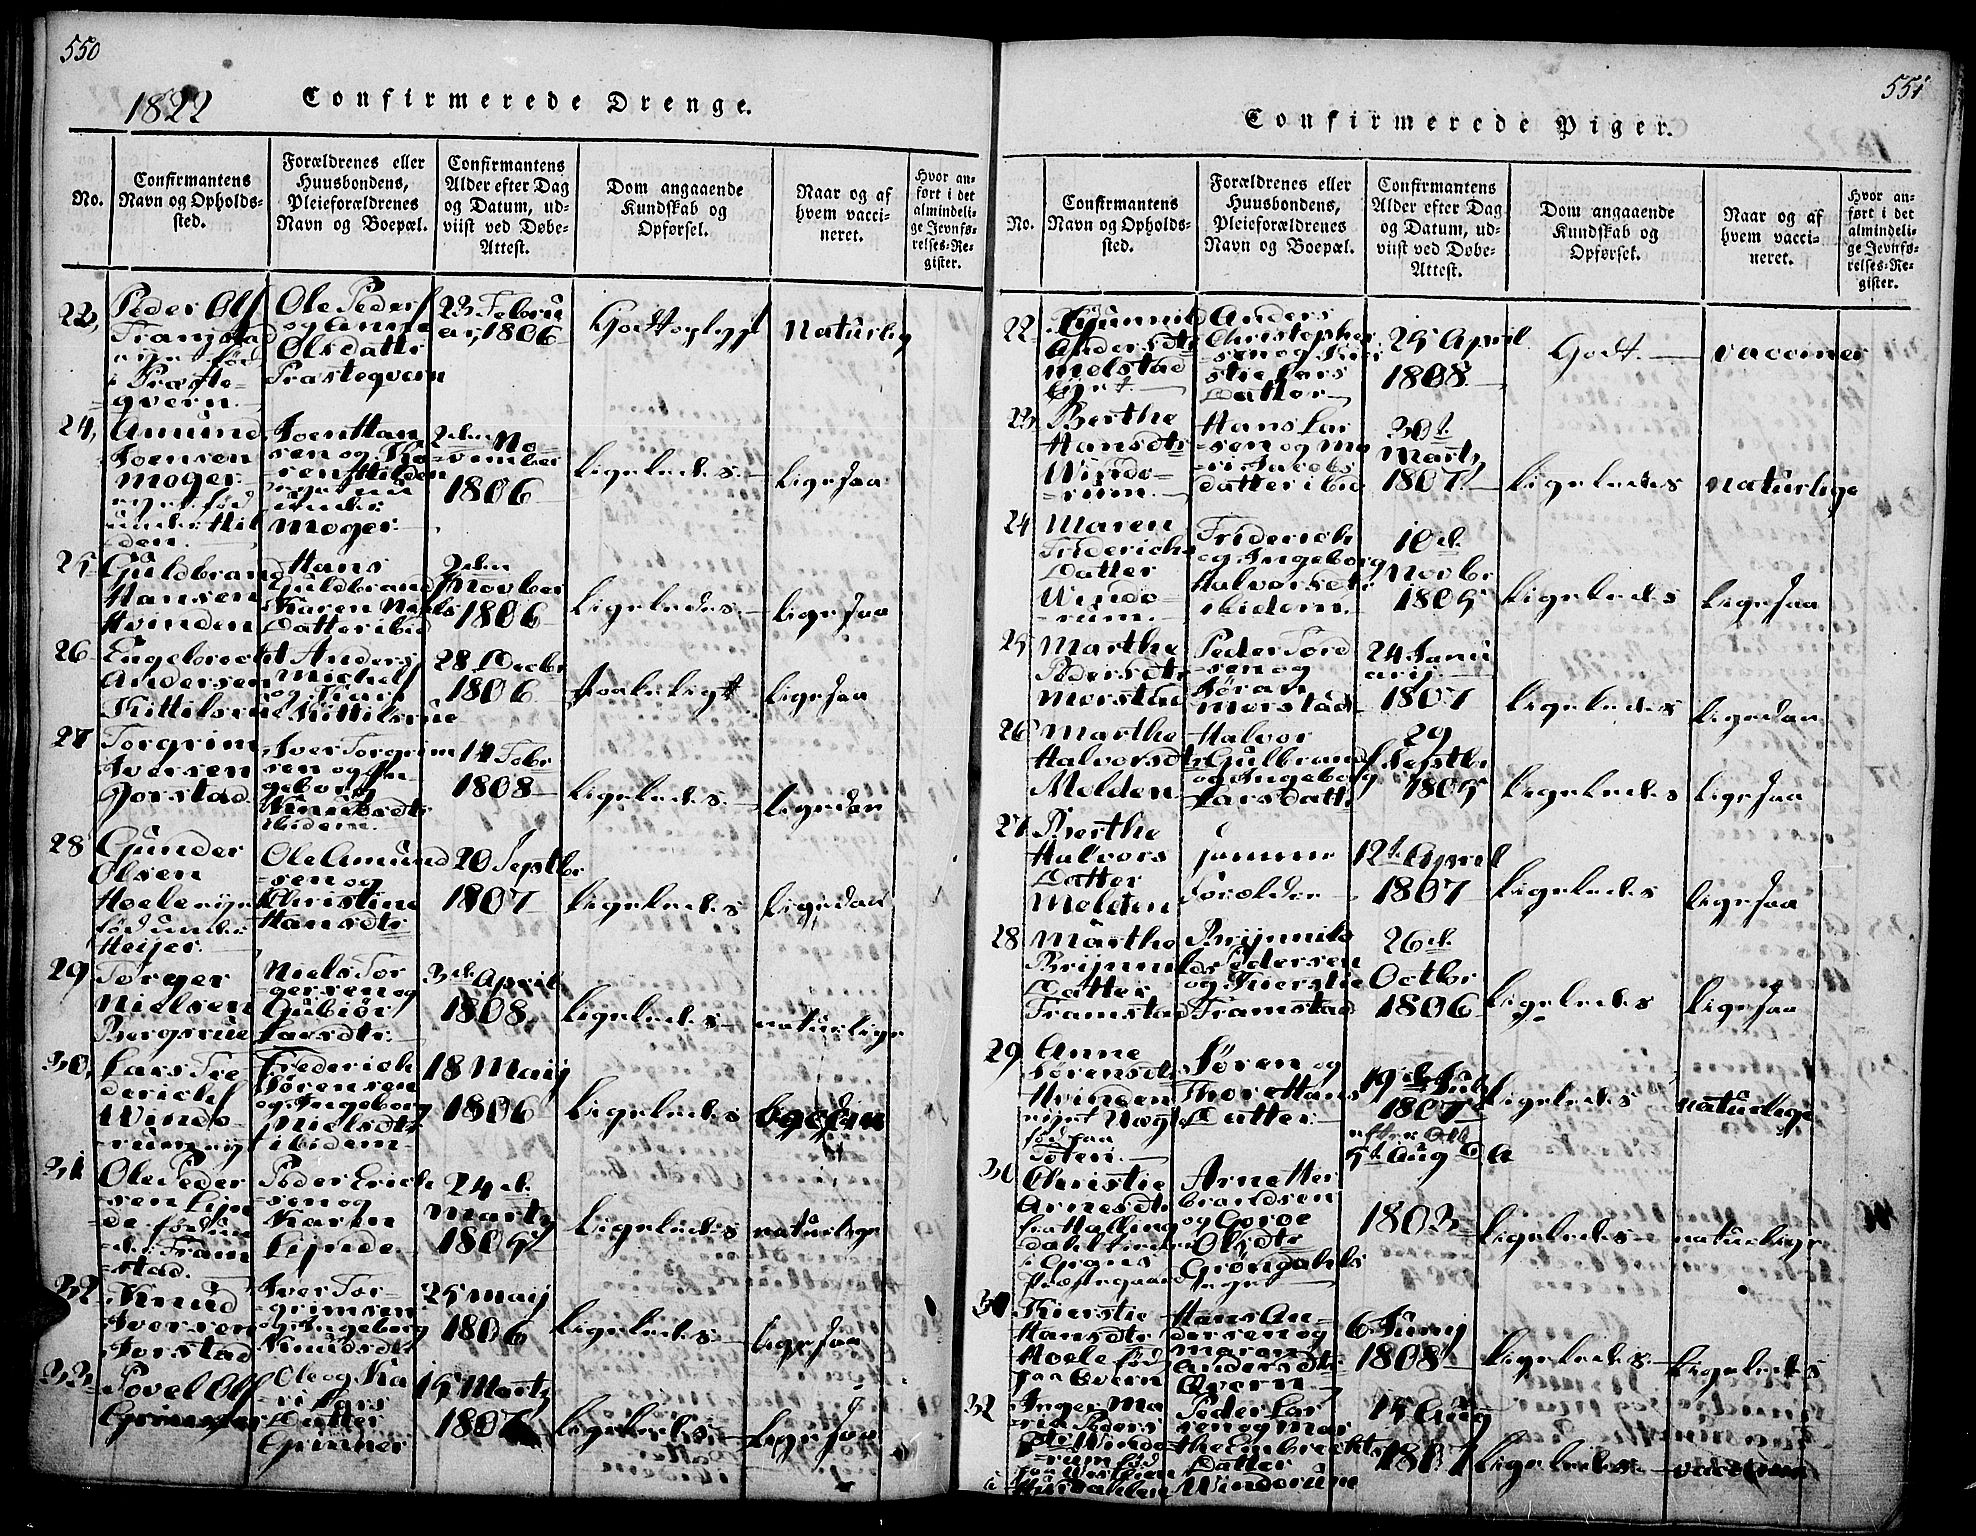 550
1822
Confirmerede Drenge.
No.
Confirmantens
Navn og Opholds-
sted.
Forældrenes eller
Huusbondens,
Pleieforældrenes
Navn og Boepæl.
Confirmantens
Alder efter Dag
og Datum, ud-
viist ved Døbe-
Attest.
Dom angaaende
Kundskab og
Opførsel.
Naar og af
hvem vacci-
neret.
Hvor an-
ført i det
almindeli-
ge Jevnfø-
relses-Re-
gister.
Peder Ols
i Præste-
qvern.
Ole Peders
og Anne
Olsdattr
Præsteqvern
23 Febru
ar, 1806
Godt og
Naturlig
24,
Amund
Joensen
Moger
under Hil
den.
Joen Han
sen og
Moger
2den No
vember
1806
Ligeledes
Ligesaa
25
Guldbrand
Hansen
Hvinden
Hans
Guldbrands
Karen Niels
Datter ibid
2den
Novber
1806
Ligeledes
Ligesaa
26
Engebrecht
Andersen
Kittilsrue
Anders
Michels
og Kari
Kittilsrue
28 Decbr
1806
Ligesaa
27
Torgrim
Iversen
Iver Torgrim
sen og In
geborg
Knudsdtr
ibidem.
14 Febr
1808
Ligeledes
Ligedan
28
Gunder
Olsen
Hoele
fød under
Heijer
Ole Amund
sen og
Christine
Hansdtr
20 Septbr
1807
Ligeledes
Ligedan
29
Torger
Nielsen
Bergsrue
Niels Tor
gersen og
Gubiør
Larsdtr
3d April
1808
Ligeledes
naturlige
30,
Lars Fre
derichs
Windo
rum
Frederich
Sørensen
og Ingeborg
Nielsdtr
ibidem
18 Maij
1806
Ligeledes
31
Ole Peder
sen Lijn
de
Fram
stad.
Peder Erich
sen og
Karen
Lijnde
24d.
Marty
1805
Ligeledes
naturlige
32
Knud
Iversen
Jorstad
Iver Tor-
grimsen
og Ingeborg
Knudsdtr
25 maij
1806
Ligeledes
Ligesaa
33
Povel Ols
Ole og Ka
ri Lars
Datter
Grinner
15 Marty
Ligeledes
Ligesaa
551
Confirmerede Piger.
No.
Confirmantens
Navn og Opholds-
sted.
Forældrenes eller
Huusbondens,
Pleieforældrenes
Navn og Boepæl.
Confirmantens
Alder efter Dag
og Datum, ud-
viist ved Døbe-
Attest.
Dom angaaende
Kundskab og
Opførsel.
Naar og af
hvem vacci-
neret.
Hvor an-
ført i det
almindeli-
ge Jevnfø-
relses-Re-
gister.
22
Gunnild
Andersdtr
Melstad
Anders
Christopher
sen og Kier
stie Lars
Datter
25 April
1808
Godt
vacciner
23
Berthe
Hansdtr
Windo-
rum.
Hans Lar
sen og Ma
ri Jacobs
datter ibid
30d.
Marty
1807
Ligeledes
naturlige
24
Maren
Friderichs
Datter
Windo-
rum.
Friderich
og Ingeborg
Halvorsdtr
ibidem.
10d.
Novbr
1805
Ligeledes
Ligesaa
25
Marthe
Pedersdtr
Morstad
Peder Tord
sen og
Jøran
Morstad
24 Janu
arij
1807
Ligeledes
Ligedan
26
Marthe
Halvorsdtr
Melden
Halvor
Gulbrands
og Ingeborg
Larsdattr
29
Septbr
1805
Ligeledes
Ligesaa
27
Berthe
Halvors
Datter
Melden
samme
Forælder
12d. April
1807
Ligeledes
Ligesaa
28
Marthe
Brijnnilds
Datter
Framstad
Brijnnild
Pedersen
og Kierstie
Framstad
26d.
Octbr
1806
Ligeledes
Ligesaa
29
Anne
Sørensdtr
Hvinden
fød paa
Toten
Søren og
Thore Hans
Datter
19d. Julij
1807
Ligeledes
naturlige
30
Christie
Arnesdtr
fra Halling
dalen
i Grans
Præstegaard
Arne Her
brandsen
og Goroe
Olsdtr
5d. Aug
1803
Ligeledes
naturlige
Kierstie
Hansdtr
Hoele fød
paa Qvern
Hans An-
dersen og
Maren
Andersdtr
Qvern
6 Junij
1808
Ligeledes
Ligeledes
32
Inger Ma
rie Peders
Dtr Windo
rum fød
Peder Lar
sen og Mar
the Embrechts
Datter
Windorum
15 Aug
1807
Ligeledes